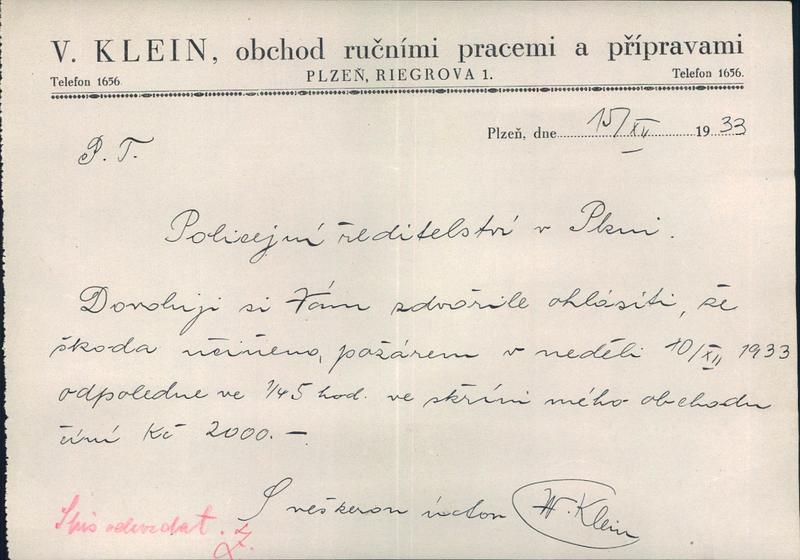 V. KLEIN, obchod ručními pracemi a přípravami
Telefon 1656. PLZEŇ, RIEGROVA 1. Telefon 1656.
Plzeň, dne 15/XII 1933
P. T.
Policejní ředitelství v Plzni.
Dovoluji si Vám zdvořile ohlásiti, že
škoda učiněna, požárem v neděli 10/XII 1933
odpoledne ve 1/45 hod. ve skříni mého obchodu
činí Kč 2000.—
S veškerou úctou W. Klein
Spis odevzdat.